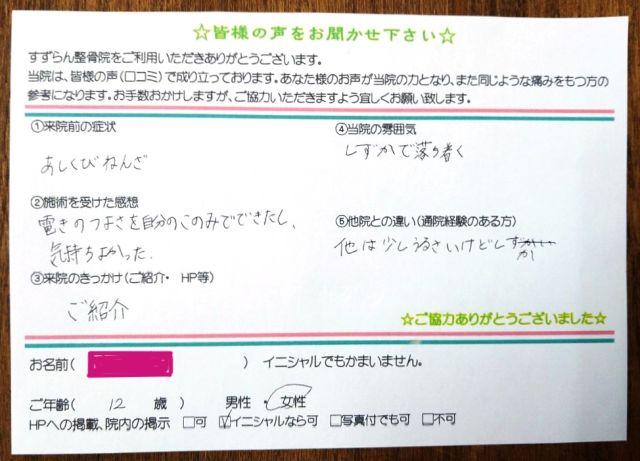 ☆皆様の声をお聞かせ下さい☆
すずらん整骨院をご利用いただきありがとうございます。
当院は、皆様の声(口コミ)で成り立っております。あなた様のお声が当院の力となり、また同じような痛みをもつ方の
参考になります。お手数おかけしますが、ご協力いただきますよう宜しくお願い致します。
①来院前の症状
あしくびねんざ
②施術を受けた感想
電きのつよさを自分のこのみでできたし、
気持ちよかった.
③来院のきっかけ(ご紹介・ HP等)
ご紹介
④当院の雰囲気
しずかで落ち着く
⑤他院との違い(通院経験のある方)
他は少しうるさいけどしずか
☆ご協力ありがとうございました☆
お名前( ) イニシャルでもかまいません。
ご年齢( 12 歳 ) 男性 ・ 女性
HPへの掲載、院内の掲示 □可 ☑イニシャルなら可 □写真付でも可 □不可